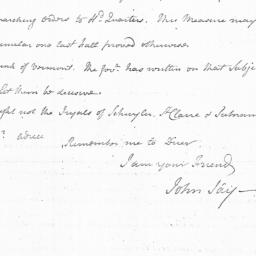 marching orders to Hd. Quarters. This Measure may
one last half proved otherwise.
of Vermont. The Govr. has written on that Subje
let them be decisive.
not the Tryals of Schuyler, St. Clare & Putnam
Remember me to Duer.
I am your Friend
John Jay